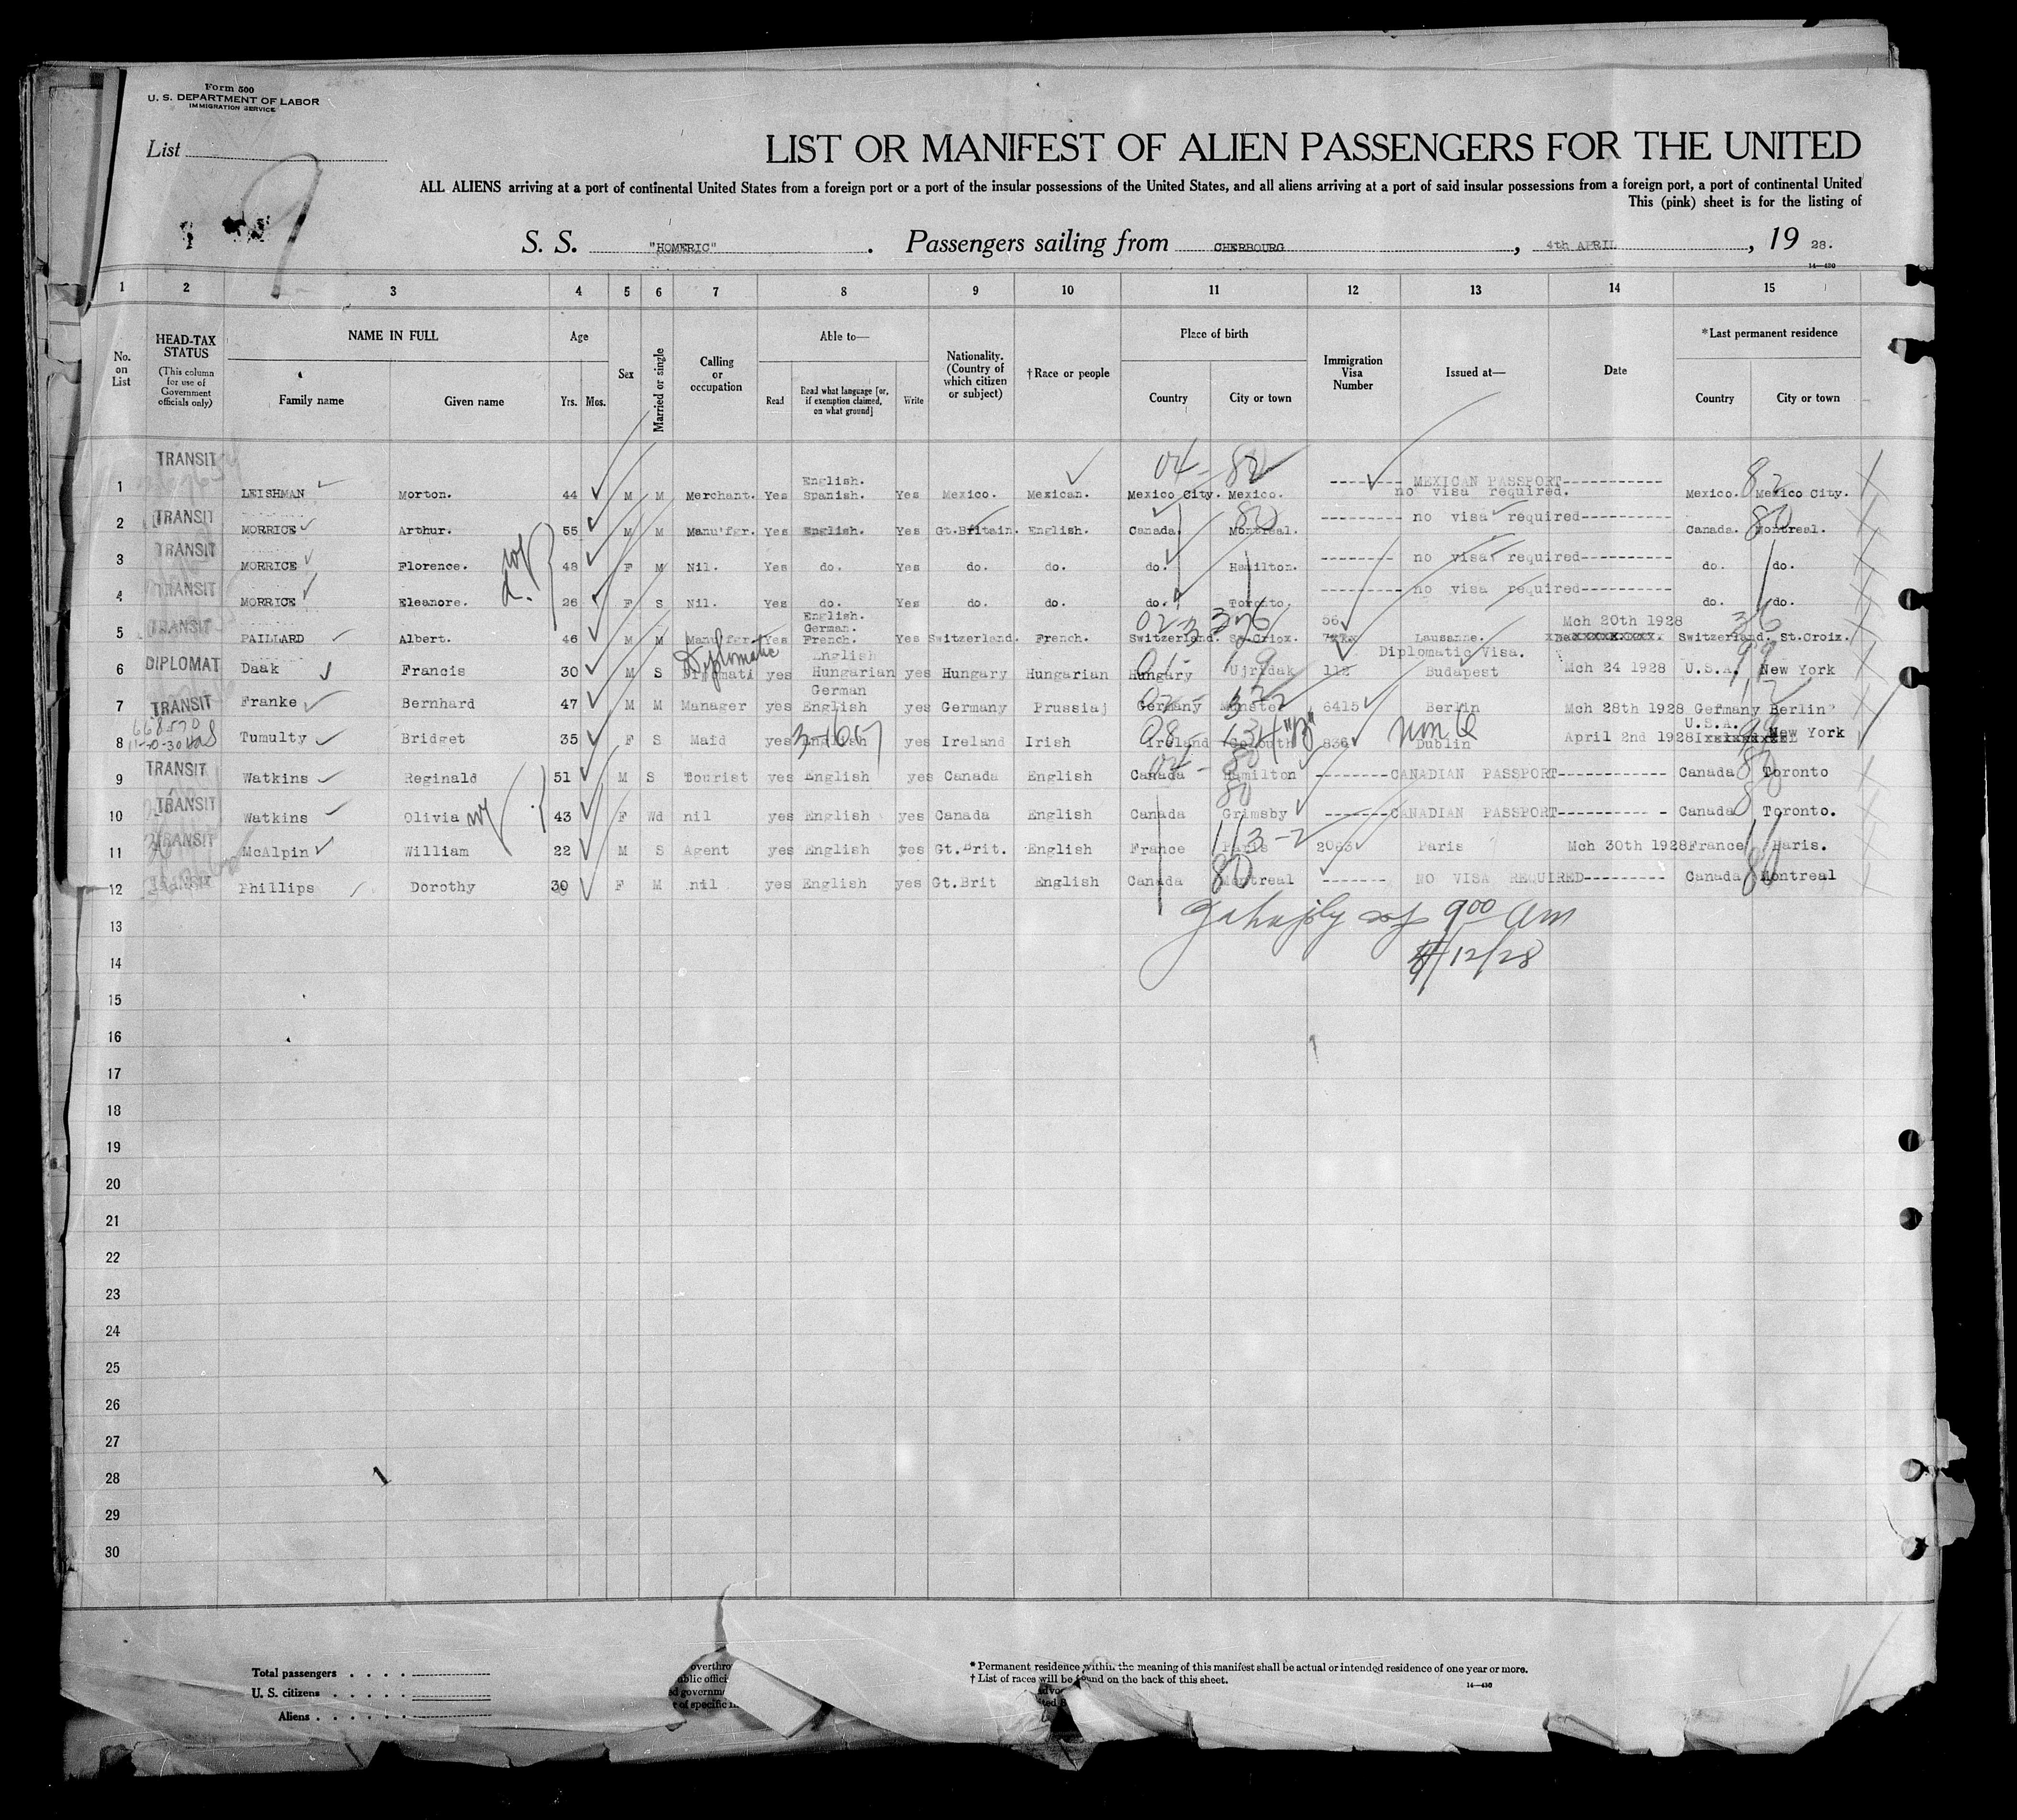 Form 500
U. S. DEPARTMENT OF LABOR
IMMIGRATION SERVICE
List
9
LIST OR MANIFEST OF ALIEN PASSENGERS FOR THE UNITED
ALL ALIENS arriving at a port of continental United States from a foreign port or a port of the insular possessions of the United States, and all aliens arriving at a port of said insular possessions from a foreign port, a port of continental United
This (pink) sheet is for the listing of
S. S. "HOMERIC". Passengers sailing from CHERBOURG, 4th APRIL, 19 28.
14—430
1 2 3 4 5 6 7 8 9 10 11 12 13 14 15
No. on List
HEAD-TAX STATUS
(This column for use of Government officials only)
NAME IN FULL
Family name Given name
Age
Yrs. Mos.
Sex
Married or single
Calling or occupation
Able to—
Read Read what language [or, if exemption claimed, on what ground] Write
Nationality. (Country of which citizen or subject)
†Race or people
Place of birth
Country City or town
Immigration Visa Number
Issued at—
Date
*Last permanent residence
Country City or town
04- 82
1 TRANSIT LEISHMAN Morton. 44 M M Merchant. Yes English. Spanish. Yes Mexico. Mexican. Mexico City. Mexico. MEXICAN PASSPORT no visa required. Mexico. 82 Mexico City.
2 TRANSIT MORRICE Arthur. 55 M M Manu'fgr. Yes English. Yes Gt.Britain. English. Canada. 80 Montreal. no visa required Canada. 80 Montreal.
3 TRANSIT MORRICE Florence. wf 48 F M Nil. Yes do. Yes do. do. do. Hamilton. no visa required do. do.
4 TRANSIT MORRICE Eleanore. d. 26 F S Nil. Yes do. Yes do. do. do. Toronto. no visa required do. do.
5 TRANSIT PAILLARD Albert. 46 M M Manu'fgr. Yes English. German. French. Yes Switzerland. French. Switzerland. St.Criox. 56 Lausanne. Mch 20th 1928 Switzerland. 36 St.Croix.
6 DIPLOMAT Daak Francis 30 M S Diplomatic yes English Hungarian yes Hungary Hungarian Hungary Ujridak 112 Diplomatic Visa. Budapest Mch 24 1928 U.S.A. 99 New York
7 TRANSIT Franke Bernhard 47 M M Manager yes German English yes Germany Prussiaj Germany Munster 6415 Berlin Mch 28th 1928 Germany 12 Berlin
8 668570 Tumulty Bridget 35 F S Maid yes English yes Ireland Irish Ireland "B" 836 Non Q Dublin April 2nd 1928 U.S.A. 99 New York
9 TRANSIT Watkins Reginald 51 M S Tourist yes English yes Canada English Canada 80 Hamilton CANADIAN PASSPORT Canada 80 Toronto
10 TRANSIT Watkins Olivia wf 43 F Wd nil yes English yes Canada English Canada 80 Grimsby CANADIAN PASSPORT Canada 80 Toronto.
11 TRANSIT McAlpin William 22 M S Agent yes English yes Gt.Brit. English France Paris 2063 Paris Mch 30th 1928 France 11 Paris.
12 TRANSIT Phillips Dorothy 30 F M nil yes English yes Gt.Brit English Canada 80 Montreal NO VISA REQUIRED Canada 80 Montreal
13
900 am
14
4/12/28
15
16
17
18
19
20
21
22
23
24
25
26
27
28
29
30
Total passengers
U. S. citizens
Aliens
* Permanent residence within the meaning of this manifest shall be actual or intended residence of one year or more.
† List of races will be found on the back of this sheet.
14—430